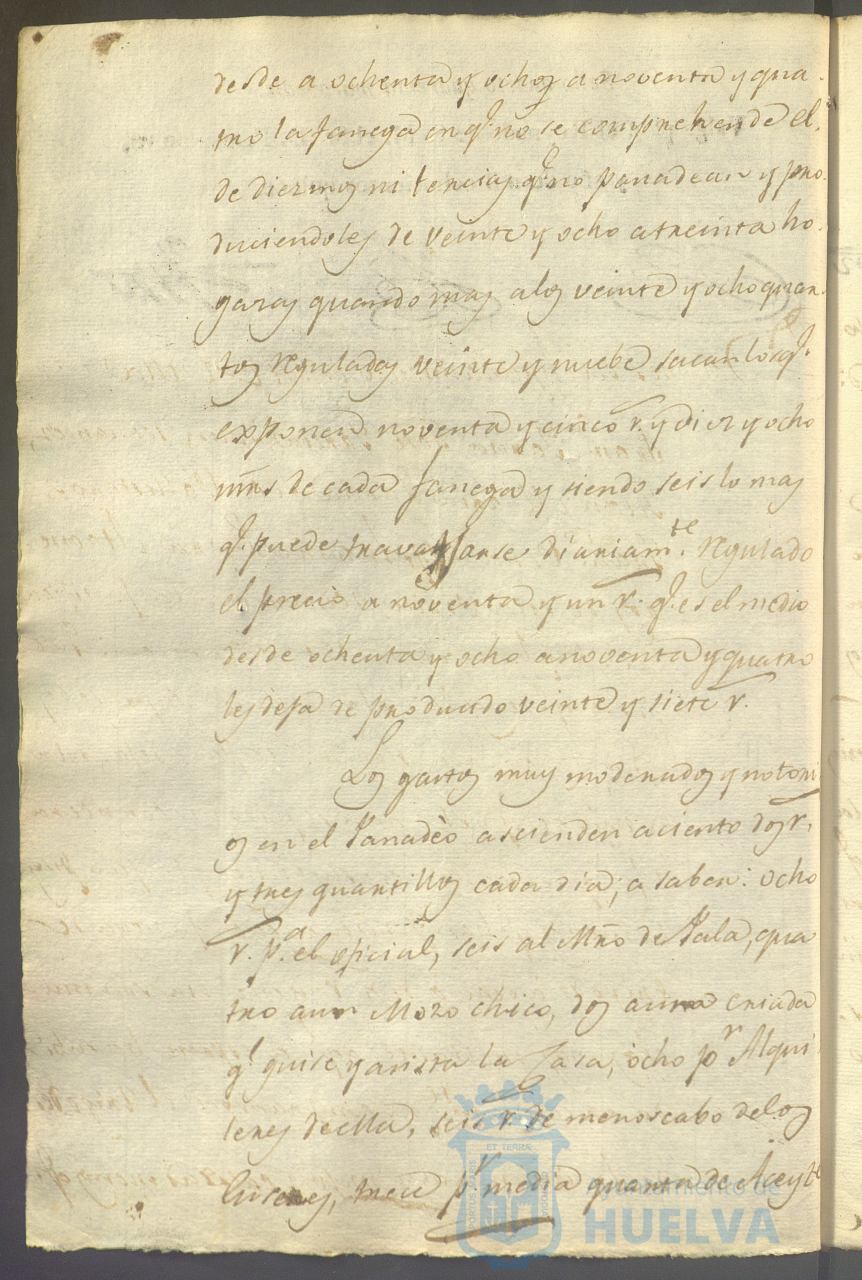 desde a ochenta y ochoz a noventa y qua-
tro la fanega en q.e no se comprehende el,
de diezmos ni tercias q.e no panadean y pro-
duciendoles de veinte y ocho a treinta ho-
gazas quando mas a los veinte y ocho quar-
tos regulados veinte y nuebe sacan los q.e
exponen noventa y cinco r.s y diez y ocho
mrs de cada fanega y siendo seis lo mas
q.e puede travajarse diariam.te regulado
el precio a noventa y un r.s q.e es el medio
desde ochenta y ocho a noventa y quatro
les deja de producido veinte y siete r.s
Los gastos muy moderados y notori-
os en el Panadèo ascienden a ciento dos r.s
y tres quartillos cada dia; a saber: ocho
r.s p.a el oficial, seis al Mro de Pala, qua-
tro a un Mozo chico, dos a una criada
q.e guise y asista la Casa, ocho p.r Alqui-
leres de ella, seis r.s de menoscabo de los
trece p.r media quarta de Aceyte
ET TERRÆ
Ayuntamiento de
HUELVA